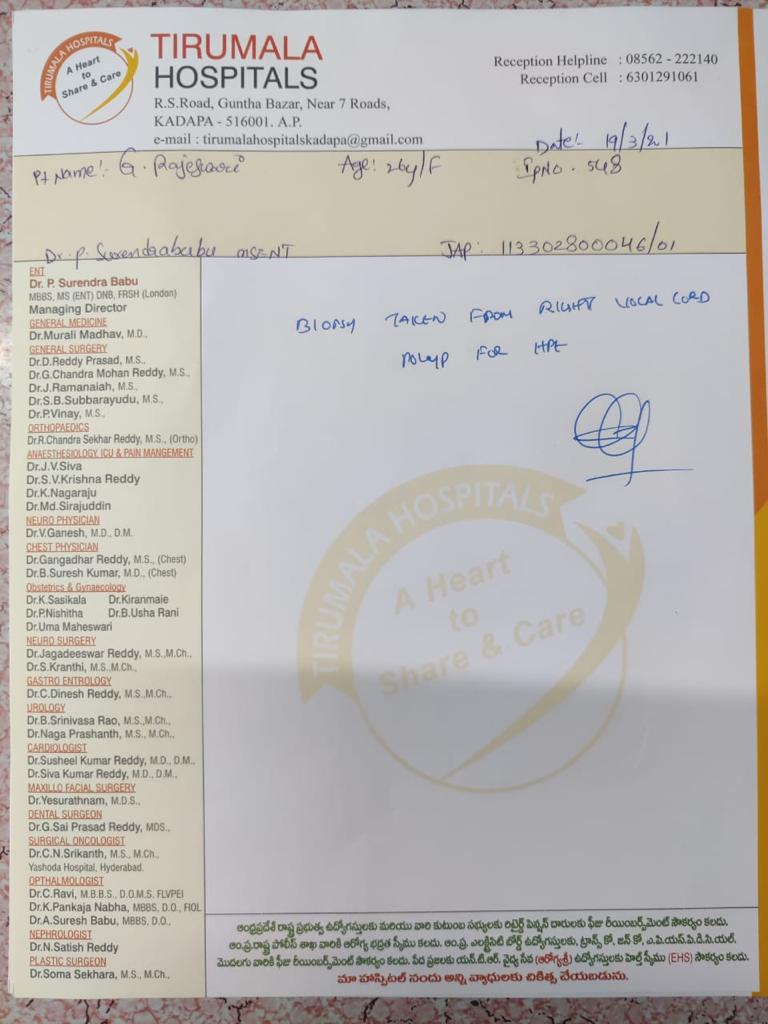 TIRUMALA HOSPITALS
A Heart
to
Share & Care
TIRUMALA
HOSPITALS
R.S.Road, Guntha Bazar, Near 7 Roads,
KADAPA - 516001. A.P.
e-mail : tirumalahospitalskadapa@gmail.com
Reception Helpline : 08562 - 222140
Reception Cell : 6301291061
Date:- 19/3/21
Pt Name:- G. Rajeswari Age: 26y/F IpNo. 548
Dr. P. Surendrababu MSENT JAP: 113302800046/01
ENT
Dr. P. Surendra Babu
MBBS, MS (ENT) DNB, FRSH (London)
Managing Director
GENERAL MEDICINE
Dr.Murali Madhav, M.D.,
GENERAL SURGERY
Dr.D.Reddy Prasad, M.S.,
Dr.G.Chandra Mohan Reddy, M.S.,
Dr.J.Ramanaiah, M.S.,
Dr.S.B.Subbarayudu, M.S.,
Dr.P.Vinay, M.S.,
ORTHOPAEDICS
Dr.R.Chandra Sekhar Reddy, M.S., (Ortho)
ANAESTHESIOLOGY, ICU & PAIN MANGEMENT
Dr.J.V.Siva
Dr.S.V.Krishna Reddy
Dr.K.Nagaraju
Dr.Md.Sirajuddin
NEURO PHYSICIAN
Dr.V.Ganesh, M.D., D.M.
CHEST PHYSICIAN
Dr.Gangadhar Reddy, M.S., (Chest)
Dr.B.Suresh Kumar, M.D., (Chest)
Obstetrics & Gynaecology
Dr.K.Sasikala Dr.Kiranmaie
Dr.P.Nishitha Dr.B.Usha Rani
Dr.Uma Maheswari
NEURO SURGERY
Dr.Jagadeeswar Reddy, M.S.,M.Ch.,
Dr.S.Kranthi, M.S.,M.Ch.,
GASTRO ENTROLOGY
Dr.C.Dinesh Reddy, M.S.,M.Ch.,
UROLOGY
Dr.B.Srinivasa Rao, M.S.,M.Ch.,
Dr.Naga Prashanth, M.S., M.Ch.,
CARDIOLOGIST
Dr.Susheel Kumar Reddy, M.D., D.M.,
Dr.Siva Kumar Reddy, M.D., D.M.,
MAXILLO FACIAL SURGERY
Dr.Yesurathnam, M.D.S.,
DENTAL SURGEON
Dr.G.Sai Prasad Reddy, MDS.,
SURGICAL ONCOLOGIST
Dr.C.N.Srikanth, M.S., M.Ch.,
Yashoda Hospital, Hyderabad.
OPTHALMOLOGIST
Dr.C.Ravi, M.B.B.S., D.O.M.S. FLVPEI
Dr.K.Pankaja Nabha, MBBS, D.O., FIOL
Dr.A.Suresh Babu, MBBS, D.O.,
NEPHROLOGIST
Dr.N.Satish Reddy
PLASTIC SURGEON
Dr.Soma Sekhara, M.S., M.Ch.,
BIOPSY TAKEN FROM RIGHT VOCAL CORD
POLYP FOR HPE
TIRUMALA HOSPITALS
A Heart
to
Share & Care
ఆంధ్రప్రదేశ్ రాష్ట్ర ప్రభుత్వ ఉద్యోగస్తులకు మరియు వారి కుటుంబ సభ్యులకు రిటైర్డ్ పెన్షన్ దారులకు ఫీజు రీయింబర్స్‌మెంట్ సౌకర్యం కలదు.
ఆం.ప్ర.రాష్ట్ర పోలీస్ శాఖ వారికి ఆరోగ్య భద్రత స్కీము కలదు. ఆం.ప్ర. ఎలక్ట్రిసిటి బోర్డ్ ఉద్యోగస్తులకు, ట్రాన్స్ కో, జన్ కో, ఎ.పి.యస్.పి.డి.సి.యల్.
మొదలగు వారికి ఫీజు రీయింబర్స్‌మెంట్ సౌకర్యం కలదు. పేద ప్రజలకు యన్.టి.ఆర్. వైద్య సేవ (ఆరోగ్యశ్రీ) ఉద్యోగస్తులకు హెల్త్ స్కీము (EHS) సౌకర్యం కలదు.
మా హాస్పిటల్ నందు అన్ని వ్యాధులకు చికిత్స చేయబడును.